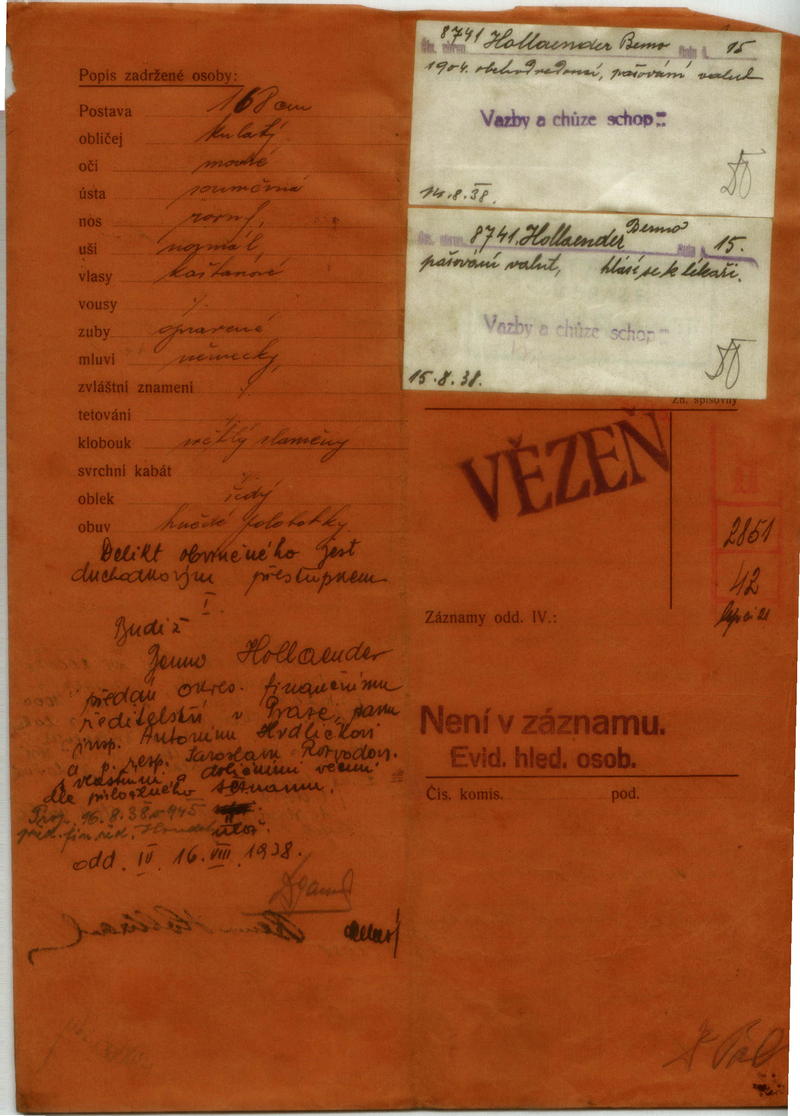 Popis zadržené osoby:
Postava 168 cm
obličej kulatý
oči modré
ústa souměrná
nos rovný,
uši normál
vlasy kaštanové
vousy /.
zuby opravené
mluví německy,
zvláštní znamení /.
tetování /.
klobouk světlý slaměný
svrchní kabát /.
oblek šedý
obuv hnědé polobotky.
Delikt obviněného jest
důchodkovým přestupkem
I.
Budiž
Benno Hollaender
předán okres. finančnímu
ředitelství v Praze, panu
insp. Antonínu Hrdličkovi
a p. resp. Jaroslavu Rozvodov.
s vlastními a doličnými věcmi
dle přiloženého seznamu.
16.8.38 945
odd. IV 16. VIII 1938.
8741 Hollaender Benno 15
1904. obchodvedoucí, pašování valut
Vazby a chůze schop::
14.8.38.
8741. Hollaender Benno 15.
pašování valut, hlásí se k lékaři.
Vazby a chůze schop::
15.8.38.
Zn. spisovny
VĚZEŇ
2851
42
Záznamy odd. IV.:
Není v záznamu.
Evid. hled. osob.
Čís. komis. pod.